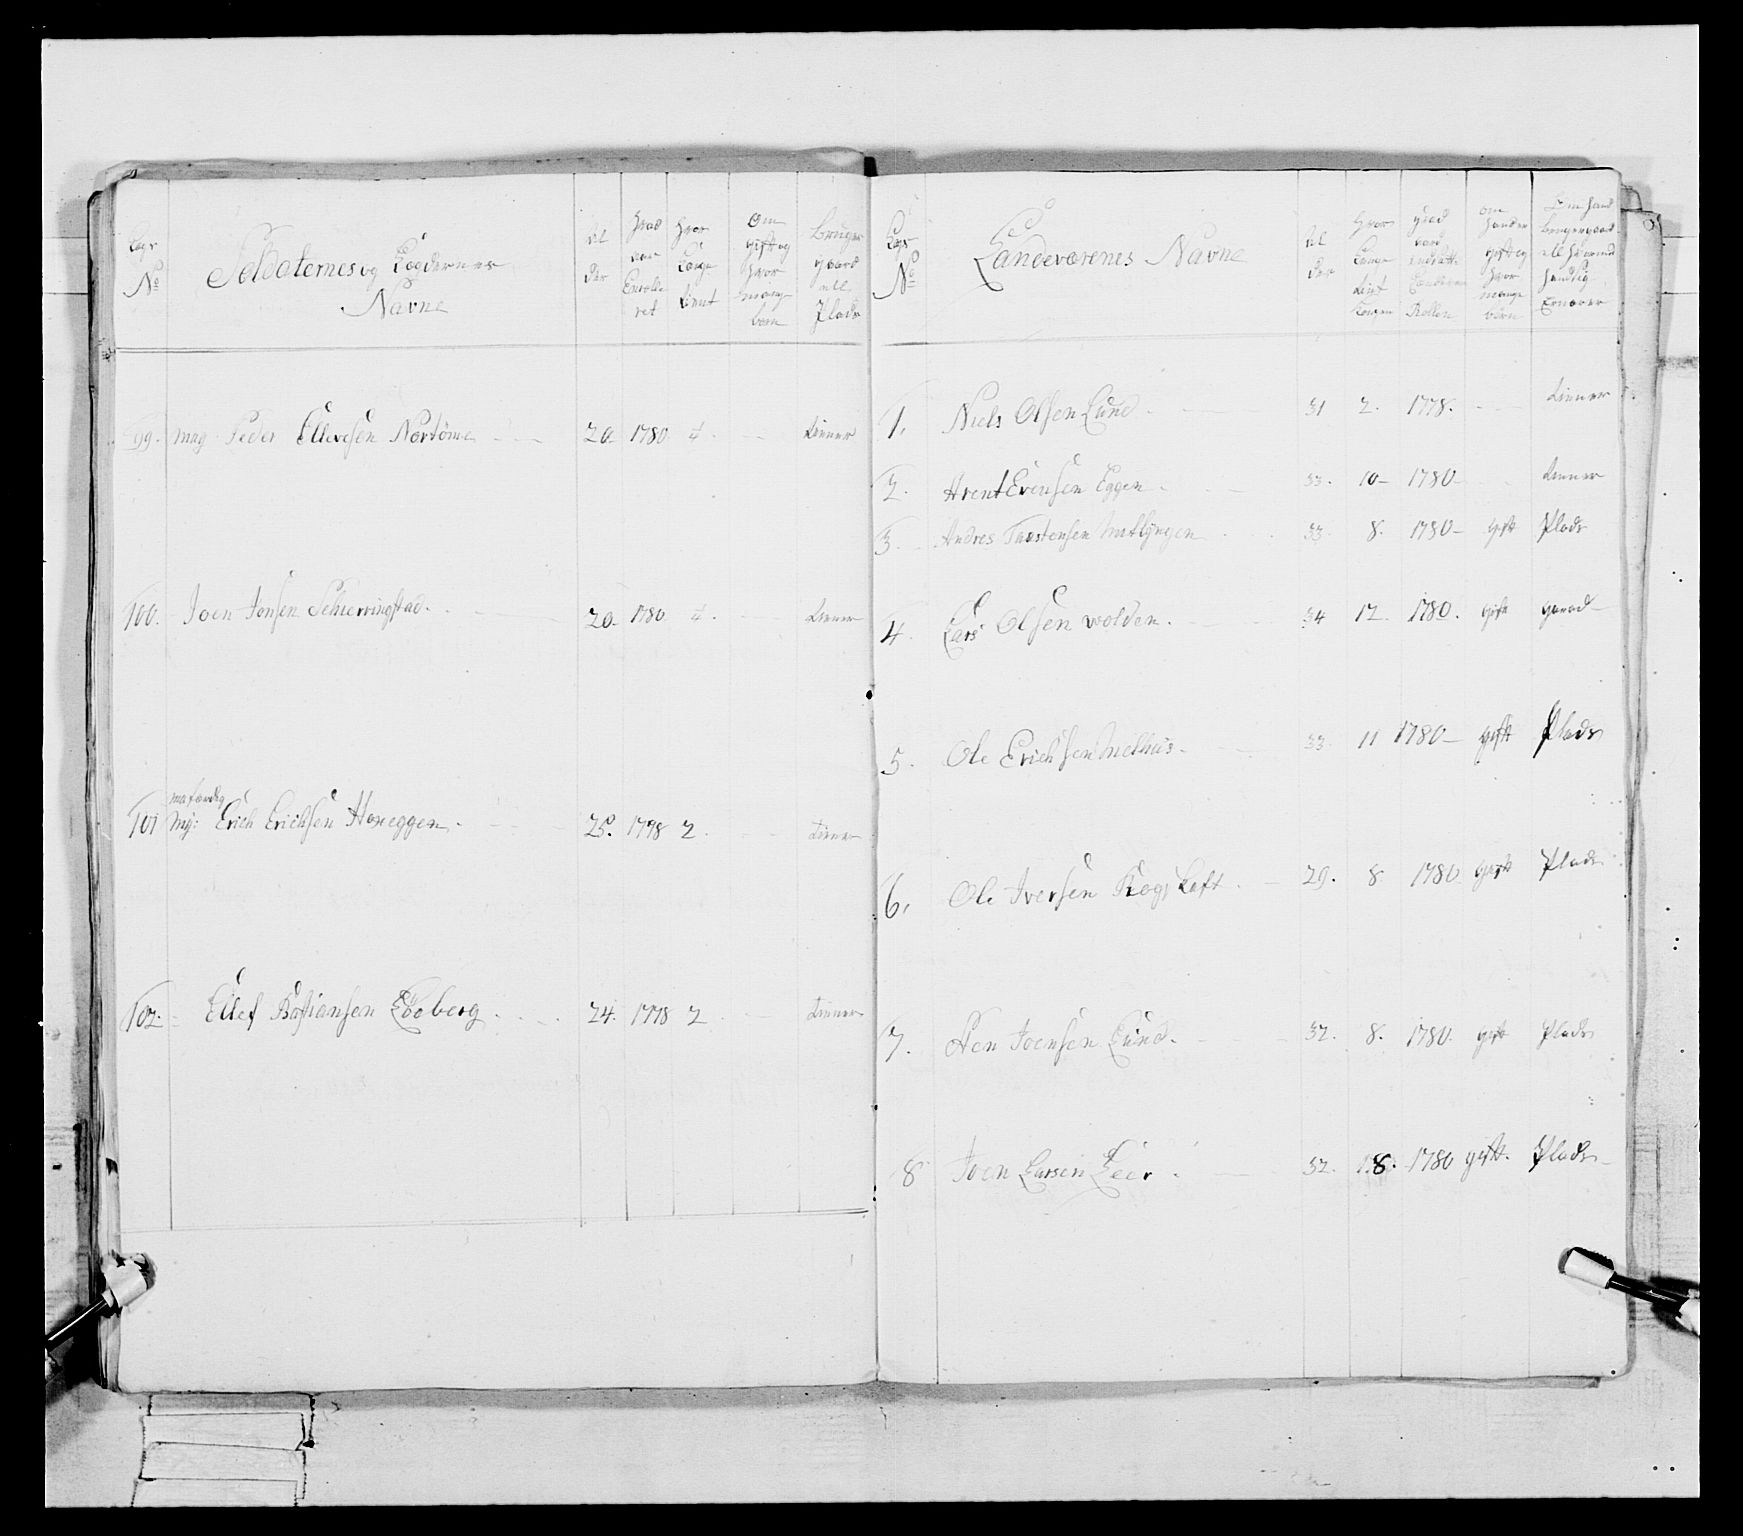 Legs No
Soldaternes og Lægdernes Navne
Al der
Hvad aar Enrolle ret
Hvor Længe tient
Om gift og hvor mange børn
Bruger gaard ell. Plads
99. Peder Ellevesen Nortöme 20 1780 4. tiener
100. Joen Jonsen Schierringstad. 20. 1780 4. tiener
101 Erich Erichsen Hoxeggen. 25. 1778 2. tiener
102. Ellef Bastiansen Löberg 24. 1778 2 tiener
Legs No
Landeværenes Navne
Al der
Hvor Længe tient Kongen
Hvad aar indsatt Landeværn Rollen
om handер gift og hvor mange børn
Om hand bruger gaard
1. Niels Olsen Lund 31 2. 1778. tiener
2. Arent Evensen Eggen. 33. 10 1780 tiener
3. Andres Thostensen 33. 8. 1780 gift Plads
4. Lars Olsen wolden. 34 12. 1780. gift gaard
5. Ole Erichsen Melhus 33. 11 1780 gift Plads
6. Ole Iversen 29. 8. 1780 gift Plads
7. Joensen Lund. 32. 8. 1780. gift Plads
8 Joen Larsen Leer. 32. 8. 1780 gift. Plads